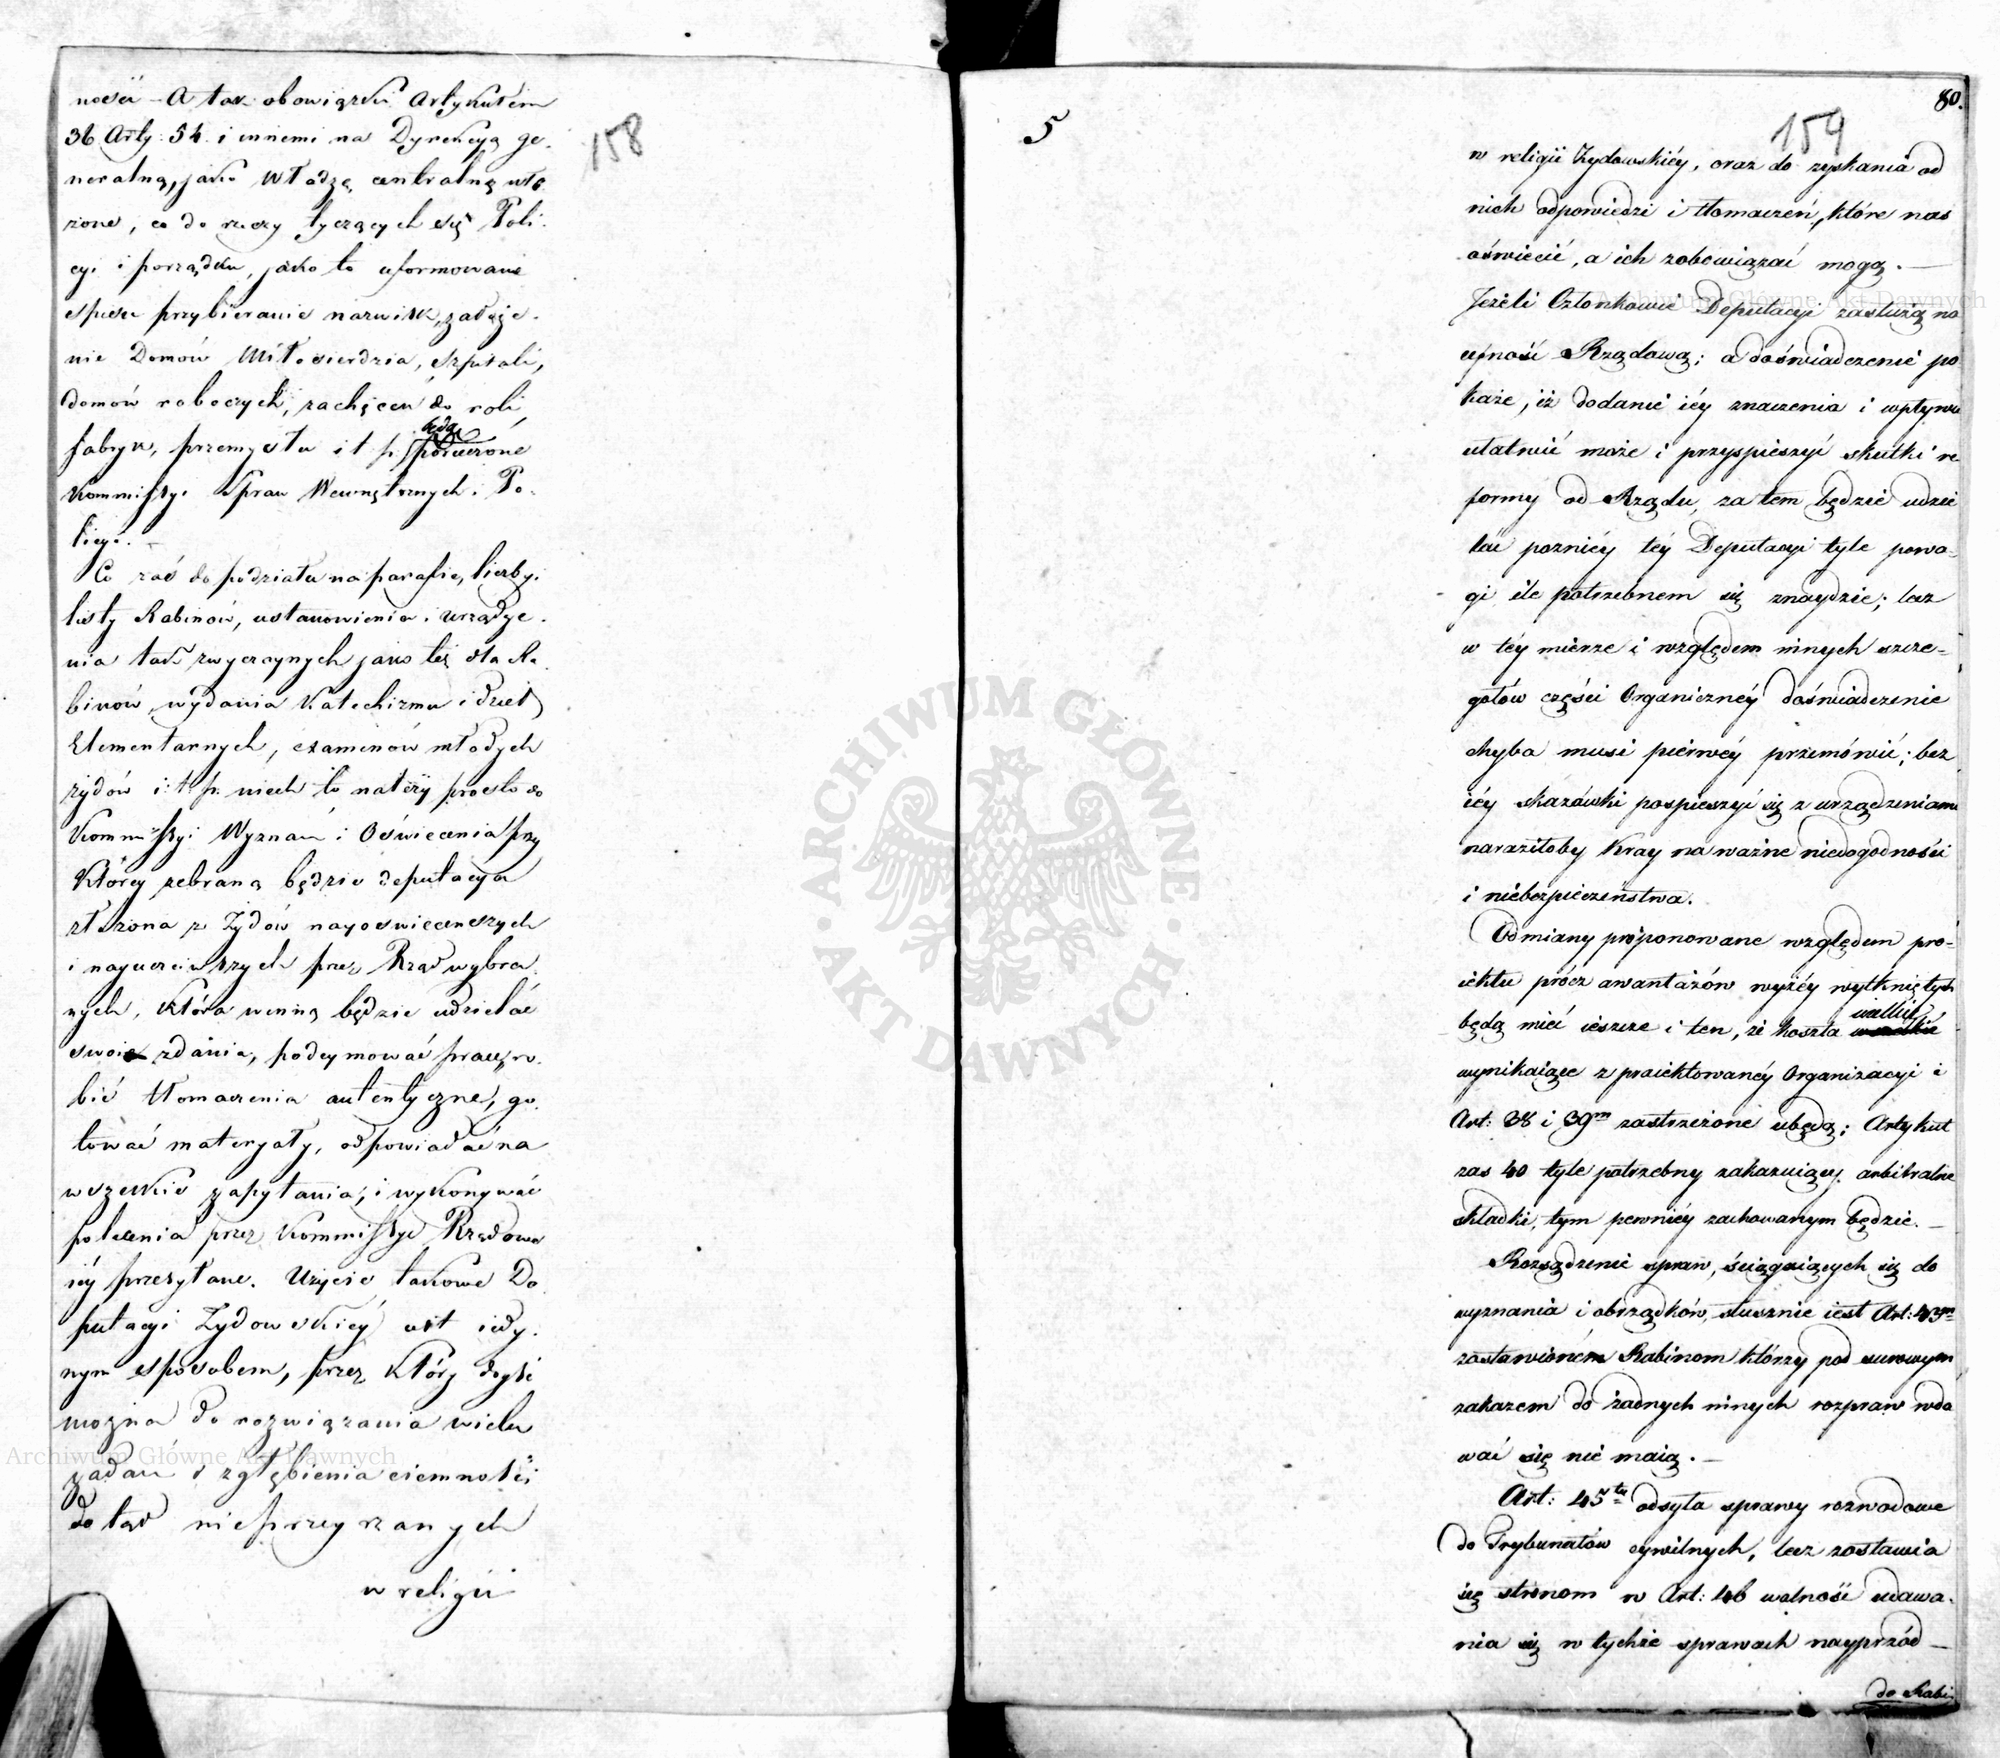 158
ności – A tak obowiązki Artykułem
36 Arty: 54. i innemi na Dyrekcyą ge-
neralną, jako Władzę centralną wło-
żone, co do rzeczy tyczących się Poli-
cyi i porządku, jako to uformowanie
spisu przybieranie nazwisk, założe-
nie Domów Miłosierdzia, szpitali,
domów roboczych, zachęceń do roli
fabryk, przemysłu i t. p. będą poruczone
Kommissyi Spraw Wewnętrznych i Po-
licyi. –
Co zaś do podziału na parafie, liczby i
listy Rabinów, ustanowienia i urządze-
nia szkół zwyczaynych jako też dla Ra-
binów, wydania Katechizmu i dzieł
Elementarnych, examinów młodych
żydów i: t: p: niech to należy prosto do
Kommissyi Wyznań i Oświecenia przy
Którey zebraną będzie deputacya
złożona z Żydów nayoswieceńszych
i nayuczciwszych przez Rząd wybra-
nych, Która winną będzie udzielać
swoie zdania, podeymować prace, ro-
bić tłomaczenia autentyczne, go-
tować materyały, odpowiadać na
wszelkie zapytania, i wykonywać
polecenia przez Kommissye Rządowe
iéy przesyłane. Użycie takowe De-
putacyi Żydowskiéy iest iedy-
nym sposobem, przez Który doyść
można do rozwiązania wielu
zadań i zgłębienia ciemności
dotąd nieprzeyrzanych
w religii
5
80.
159
w religii Żydowskiéy, oraz do zyskania od
nich odpowiedzi i tłomaczeń, które nas
oświecić, a ich zobowiązać mogą. —
Jeżeli Członkowie Deputacyi zasłużą na
ufność Rządową; a doświadczenie po
każe, iż dodanie iéy znaczenia i wpływu
ułatwić może i przyspieszyć skutki re
formy od Rządu, zatem będzie udzie
lać poźniéy téy Deputacyi tyle powa-
gi ile potrzebnem się znaydzie; lecz
w téy mierze i względem innych szcze-
gołów części Organicznéy doświadczenie
chyba musi pierwéy przemówić; bez
iéy skazówki pospieszyć się z urządzeniami
naraziłoby Kray na ważne niedogodności
i niebezpieczeństwa.
Odmiany proponowane względem pro-
iektu prócz awantażów wyżéy wytkniętych
będą mieć ieszcze i ten, że koszta wszelkie
wynikaiące z proiektowanéy Organizacyi i
Art: 38 i 39m zastrzeżone ubędą; Artykuł
zas 40 tyle potrzebny zakazuiący arbitralne
składki, tym pewniéy zachowanym będzie. —
Rozsądzenie spraw, ściągaiących się do
wyznania i obrządków, słusznie iest Art: 43m
zostawioném Rabinom którzy pod surowym
zakazem do żadnych innych rozpraw wda
wać się nie maią. —
Art: 45ty odsyła sprawy rozwodowe
do Trybunałów cywilnych, lecz zostawia
się stronom w Art: 46 wolność udawa-
nia się w tychże sprawach nayprzód —
do Rabi-
ARCHIWUM GŁÓWNE AKT DAWNYCH
Archiwum Główne Akt Dawnych
Archiwum Główne Akt Dawnych